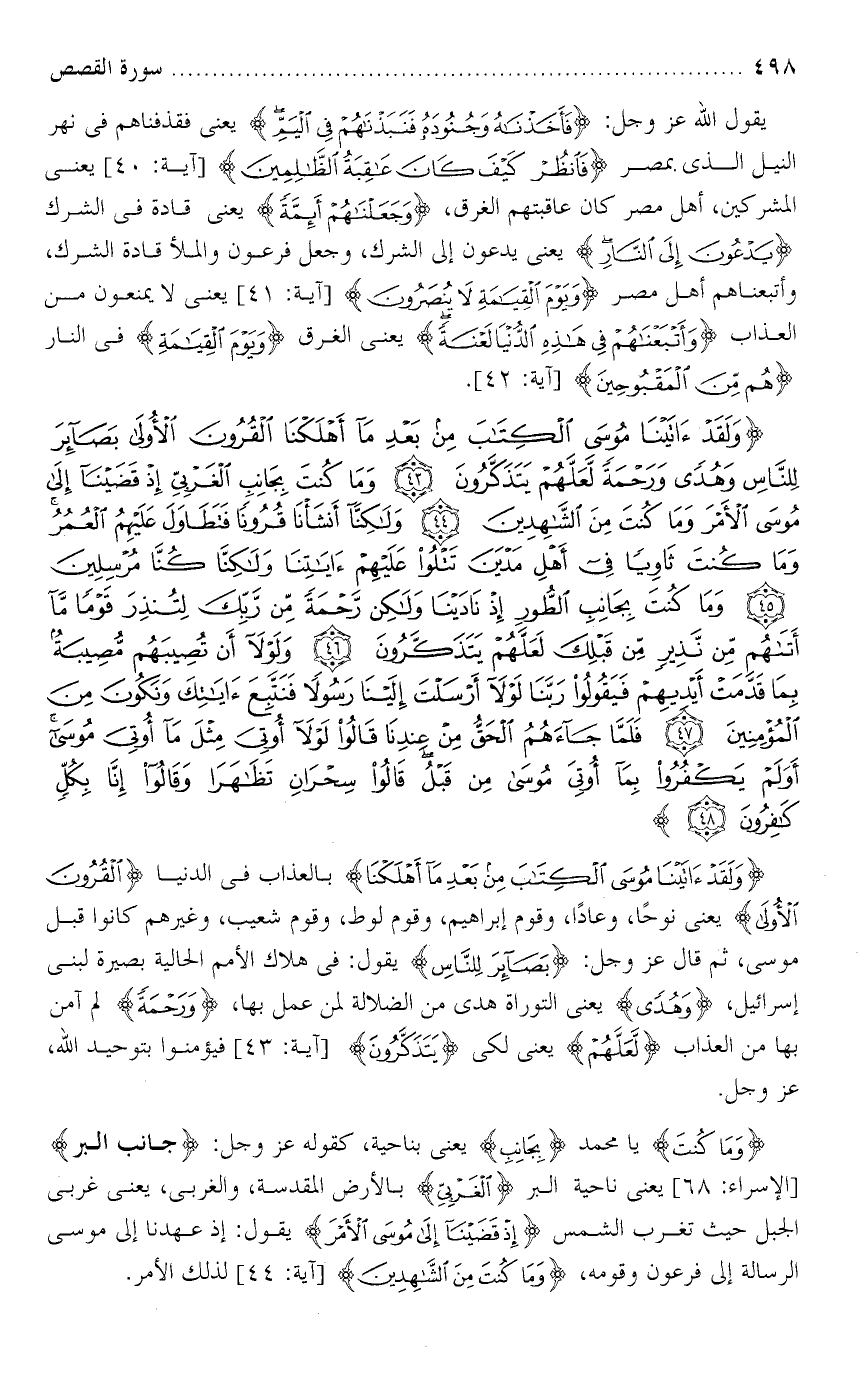 ٤٩٨ ........................................................................ سورة القصص
يقول الله عز وجل: ﴿فَأَخَذْنَـٰهُ وَجُنُودَهُۥ فَنَبَذْنَـٰهُمْ فِى ٱلْيَمِّ ۖ﴾ يعنى فقذفناهم فى نهر
النيل الـــذى بمصـــر ﴿فَٱنظُرْ كَيْفَ كَانَ عَـٰقِبَةُ ٱلظَّـٰلِمِينَ﴾ [آيـــة: ٤٠] يعنـــى
المشركين، أهل مصر كان عاقبتهم الغرق، ﴿وَجَعَلْنَـٰهُمْ أَئِمَّةً﴾ يعنى قـادة فـى الشـرك
﴿يَدْعُونَ إِلَى ٱلنَّارِ ۖ﴾ يعنى يدعون إلى الشرك، وجعل فرعـون والمـلأ قـادة الشـرك،
وأتبعنـاهم أهـل مصـر ﴿وَيَوْمَ ٱلْقِيَـٰمَةِ لَا يُنصَرُونَ﴾ [آية: ٤١] يعنـى لا يمنعون مـن
العـذاب ﴿وَأَتْبَعْنَـٰهُمْ فِى هَـٰذِهِ ٱلدُّنْيَا لَعْنَةً ۖ﴾ يعنـى الغـرق ﴿وَيَوْمَ ٱلْقِيَـٰمَةِ﴾ فـى النار
﴿هُم مِّنَ ٱلْمَقْبُوحِينَ﴾ [آية: ٤٢].
﴿وَلَقَدْ ءَاتَيْنَا مُوسَى ٱلْكِتَـٰبَ مِنۢ بَعْدِ مَآ أَهْلَكْنَا ٱلْقُرُونَ ٱلْأُولَىٰ بَصَآئِرَ
لِلنَّاسِ وَهُدًى وَرَحْمَةً لَّعَلَّهُمْ يَتَذَكَّرُونَ ٤٣ وَمَا كُنتَ بِجَانِبِ ٱلْغَرْبِىِّ إِذْ قَضَيْنَآ إِلَىٰ
مُوسَى ٱلْأَمْرَ وَمَا كُنتَ مِنَ ٱلشَّـٰهِدِينَ ٤٤ وَلَـٰكِنَّآ أَنشَأْنَا قُرُونًا فَتَطَاوَلَ عَلَيْهِمُ ٱلْعُمُرُ ۚ
وَمَا كُنتَ ثَاوِيًا فِىٓ أَهْلِ مَدْيَنَ تَتْلُوا۟ عَلَيْهِمْ ءَايَـٰتِنَا وَلَـٰكِنَّا كُنَّا مُرْسِلِينَ
٤٥ وَمَا كُنتَ بِجَانِبِ ٱلطُّورِ إِذْ نَادَيْنَا وَلَـٰكِن رَّحْمَةً مِّن رَّبِّكَ لِتُنذِرَ قَوْمًا مَّآ
أَتَىٰهُم مِّن نَّذِيرٍ مِّن قَبْلِكَ لَعَلَّهُمْ يَتَذَكَّرُونَ ٤٦ وَلَوْلَآ أَن تُصِيبَهُم مُّصِيبَةٌۢ
بِمَا قَدَّمَتْ أَيْدِيهِمْ فَيَقُولُوا۟ رَبَّنَا لَوْلَآ أَرْسَلْتَ إِلَيْنَا رَسُولًا فَنَتَّبِعَ ءَايَـٰتِكَ وَنَكُونَ مِنَ
ٱلْمُؤْمِنِينَ ٤٧ فَلَمَّا جَآءَهُمُ ٱلْحَقُّ مِنْ عِندِنَا قَالُوا۟ لَوْلَآ أُوتِىَ مِثْلَ مَآ أُوتِىَ مُوسَىٰٓ ۚ
أَوَلَمْ يَكْفُرُوا۟ بِمَآ أُوتِىَ مُوسَىٰ مِن قَبْلُ ۖ قَالُوا۟ سِحْرَانِ تَظَـٰهَرَا وَقَالُوٓا۟ إِنَّا بِكُلٍّ
كَـٰفِرُونَ ٤٨ ﴾
﴿وَلَقَدْ ءَاتَيْنَا مُوسَى ٱلْكِتَـٰبَ مِنۢ بَعْدِ مَآ أَهْلَكْنَا﴾ بـالعذاب فـى الدنيـا ﴿ٱلْقُرُونَ
ٱلْأُولَىٰ﴾ يعنى نوحًا، وعادًا، وقوم إبراهيم، وقوم لوط، وقوم شعيب، وغيرهم كانوا قبـل
موسى، ثم قال عز وجل: ﴿بَصَآئِرَ لِلنَّاسِ﴾ يقول: فى هلاك الأمم الخالية بصيرة لبنى
إسرائيل، ﴿وَهُدًى﴾ يعنى التوراة هدى من الضلالة لمن عمل بها، ﴿وَرَحْمَةً﴾ لم آمن
بها من العذاب ﴿لَّعَلَّهُمْ﴾ يعنى لكى ﴿يَتَذَكَّرُونَ﴾ [آيـة: ٤٣] فيؤمنـوا بتوحيـد الله،
عز وجل.
﴿وَمَا كُنتَ﴾ يا محمد ﴿بِجَانِبِ﴾ يعنى بناحية، كقوله عز وجل: ﴿جـانب الـبر﴾
[الإسراء: ٦٨] يعنى ناحية البر ﴿ٱلْغَرْبِىِّ﴾ بـالأرض المقدسـة، والغربـى، يعنـى غربـى
الجبل حيث تغـرب الشـمس ﴿إِذْ قَضَيْنَآ إِلَىٰ مُوسَى ٱلْأَمْرَ﴾ يقـول: إذ عـهدنا إلى موسـى
الرسالة إلى فرعون وقومه، ﴿وَمَا كُنتَ مِنَ ٱلشَّـٰهِدِينَ﴾ [آية: ٤٤] لذلك الأمر.